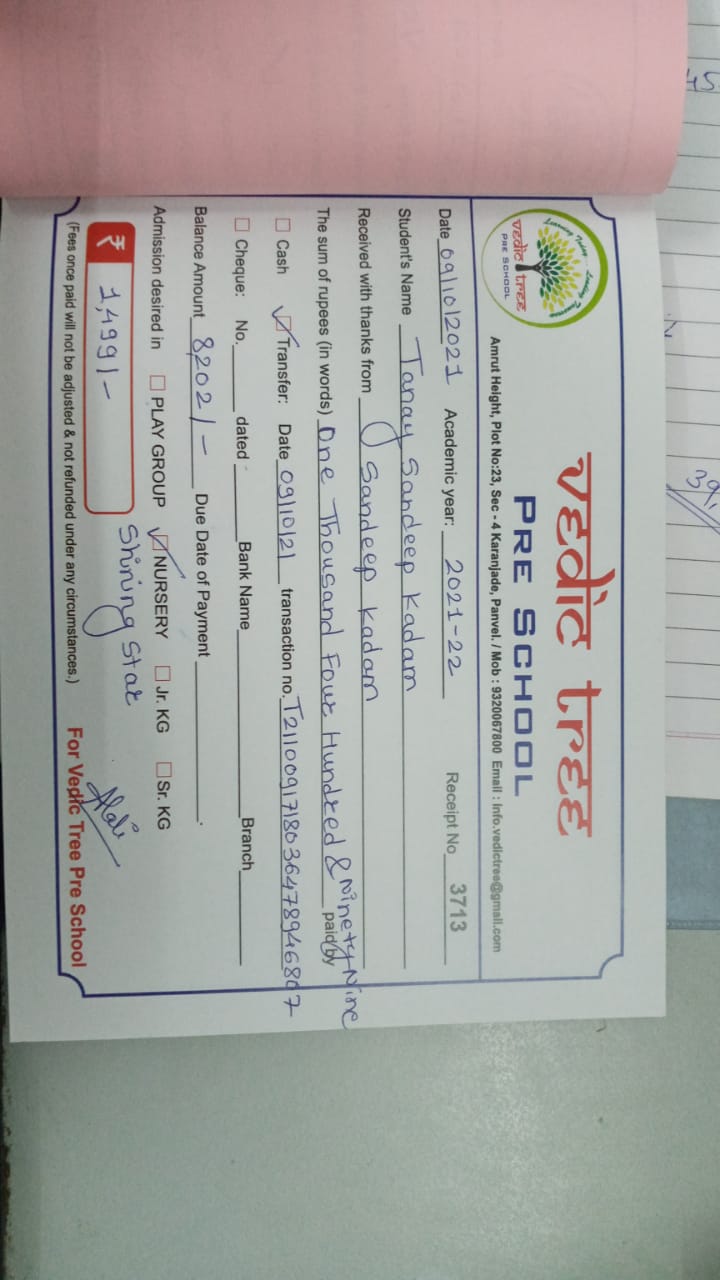 Learning Today ... Leading Tomorrow
vedic tree
PRE SCHOOL
vedic tree
PRE SCHOOL
Amrut Height, Plot No:23, Sec - 4 Karanjade, Panvel. / Mob : 9320067800 Email : Info.vedictree@gmail.com
Date 09/10/2021 Academic year: 2021-22 Receipt No 3713
Student's Name Tanay Sandeep Kadam
Received with thanks from Sandeep Kadam
The sum of rupees (in words) One Thousand Four Hundred & Ninety Nine paid by
Cash Transfer: Date 09/10/21 transaction no.
Cheque: No. dated Bank Name Branch
Balance Amount 8,202/- Due Date of Payment
Admission desired in PLAY GROUP NURSERY Jr. KG Sr. KG
₹ 1,499/- Shining Star
(Fees once paid will not be adjusted & not refunded under any circumstances.) For Vedic Tree Pre School